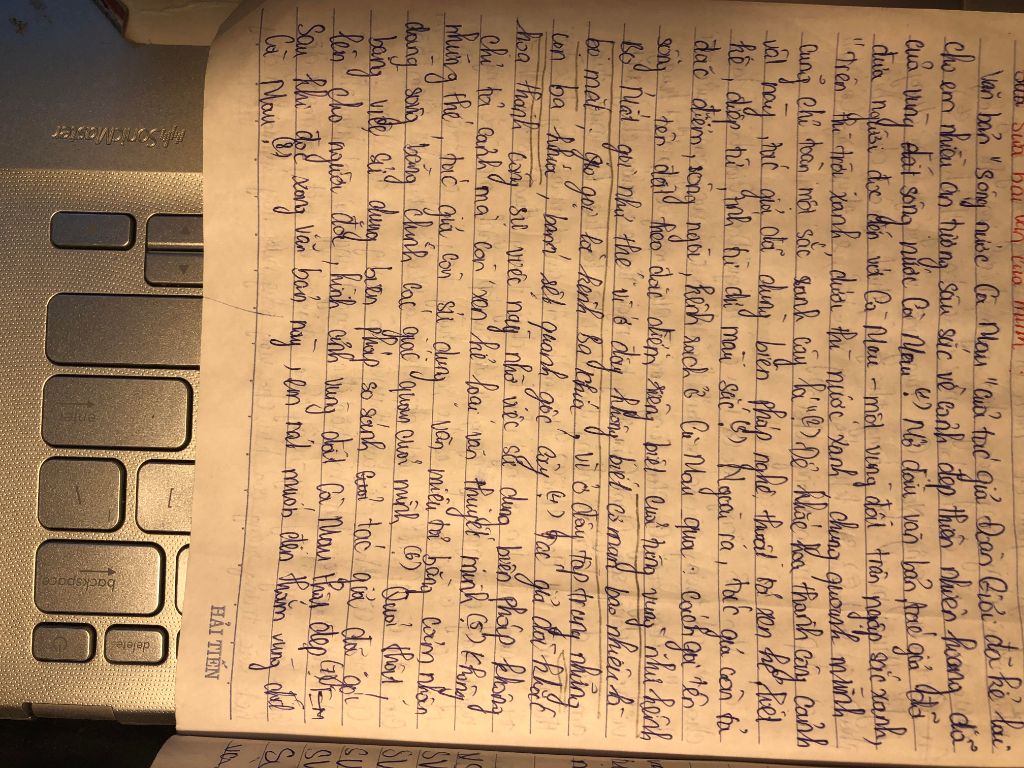 bài văn của mình
Văn bản "Sông nước Cà Mau" của tác giả Đoàn Giỏi đã để lại
cho em nhiều ấn tượng sâu sắc về cảnh đẹp thiên nhiên hoang dã
của vùng đất sông nước Cà Mau. (1) Mở đầu văn bản, tác giả đã
đưa người đọc đến với Cà Mau - một vùng đất tràn ngập sắc xanh,
"Trên thì trời xanh, dưới thì nước xanh, chung quanh mình
cũng chỉ toàn một sắc xanh cây lá" (2) Để khắc họa thành công cảnh
vật này, tác giả đã dùng biện pháp nghệ thuật tả xen kẽ, liệt
kê, điệp từ, tính từ chỉ màu sắc. (3) Ngoài ra, tác giả còn tả
đặc điểm, sông ngòi, kênh rạch ở Cà Mau qua cách gọi tên
sông tên đất theo đặc điểm riêng biệt của từng vùng như kênh
Bọ Mắt gọi như thế vì ở đây không biết cơ man bao nhiêu là
bọ mắt, gọi là kênh Ba khía, vì ở đây tập trung những
con ba khía, bám sệt quanh gốc cây. (4) Tác giả đã khắc
họa thành công sự việc này nhờ việc sử dụng biện pháp không
chỉ tả cảnh mà còn xen kẽ loại văn thuyết minh. (5) Không
những thế, tác giả còn sử dụng văn miêu tả bằng cảm nhận
dòng sông bằng chính các giác quan của mình (6) Quả thật,
bằng việc sử dụng biện pháp so sánh tác giả đã gợi
lên cho người đọc, hình ảnh vùng đất Cà Mau thật đẹp (7) Em
Sau khi đọc xong văn bản này, em rất muốn đến thăm vùng đất
Cà Mau. (8)
HẢI TIẾN
SonicMaster
enter
backspace
delete